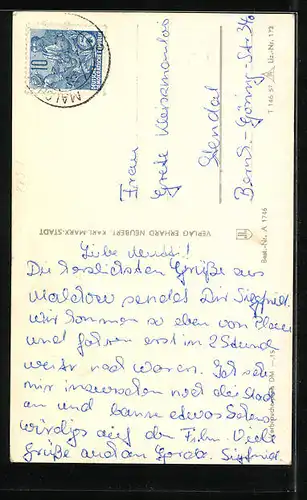 10
MALCH
Frau
Grete
Stendal
Bernd-Göring-Str. 36
T 146 57
Liz.-Nr. 173
VERLAG ERHARD NEUBERT, KARL-MARX-STADT
Best.-Nr. A 1746
Liebe Mutti!
Die herzlichsten Grüße aus
Malchow sendet Dir Siegfried.
Wir kommen so eben von Plau
und fahren erst in 2 Stund
weiter nach Waren. Ich seh
mir inzwischen noch die Stadt
an und banne etwas Sehens-
würdiges auf den Film. Viele
Grüße auch an Gerda. Siegfried.